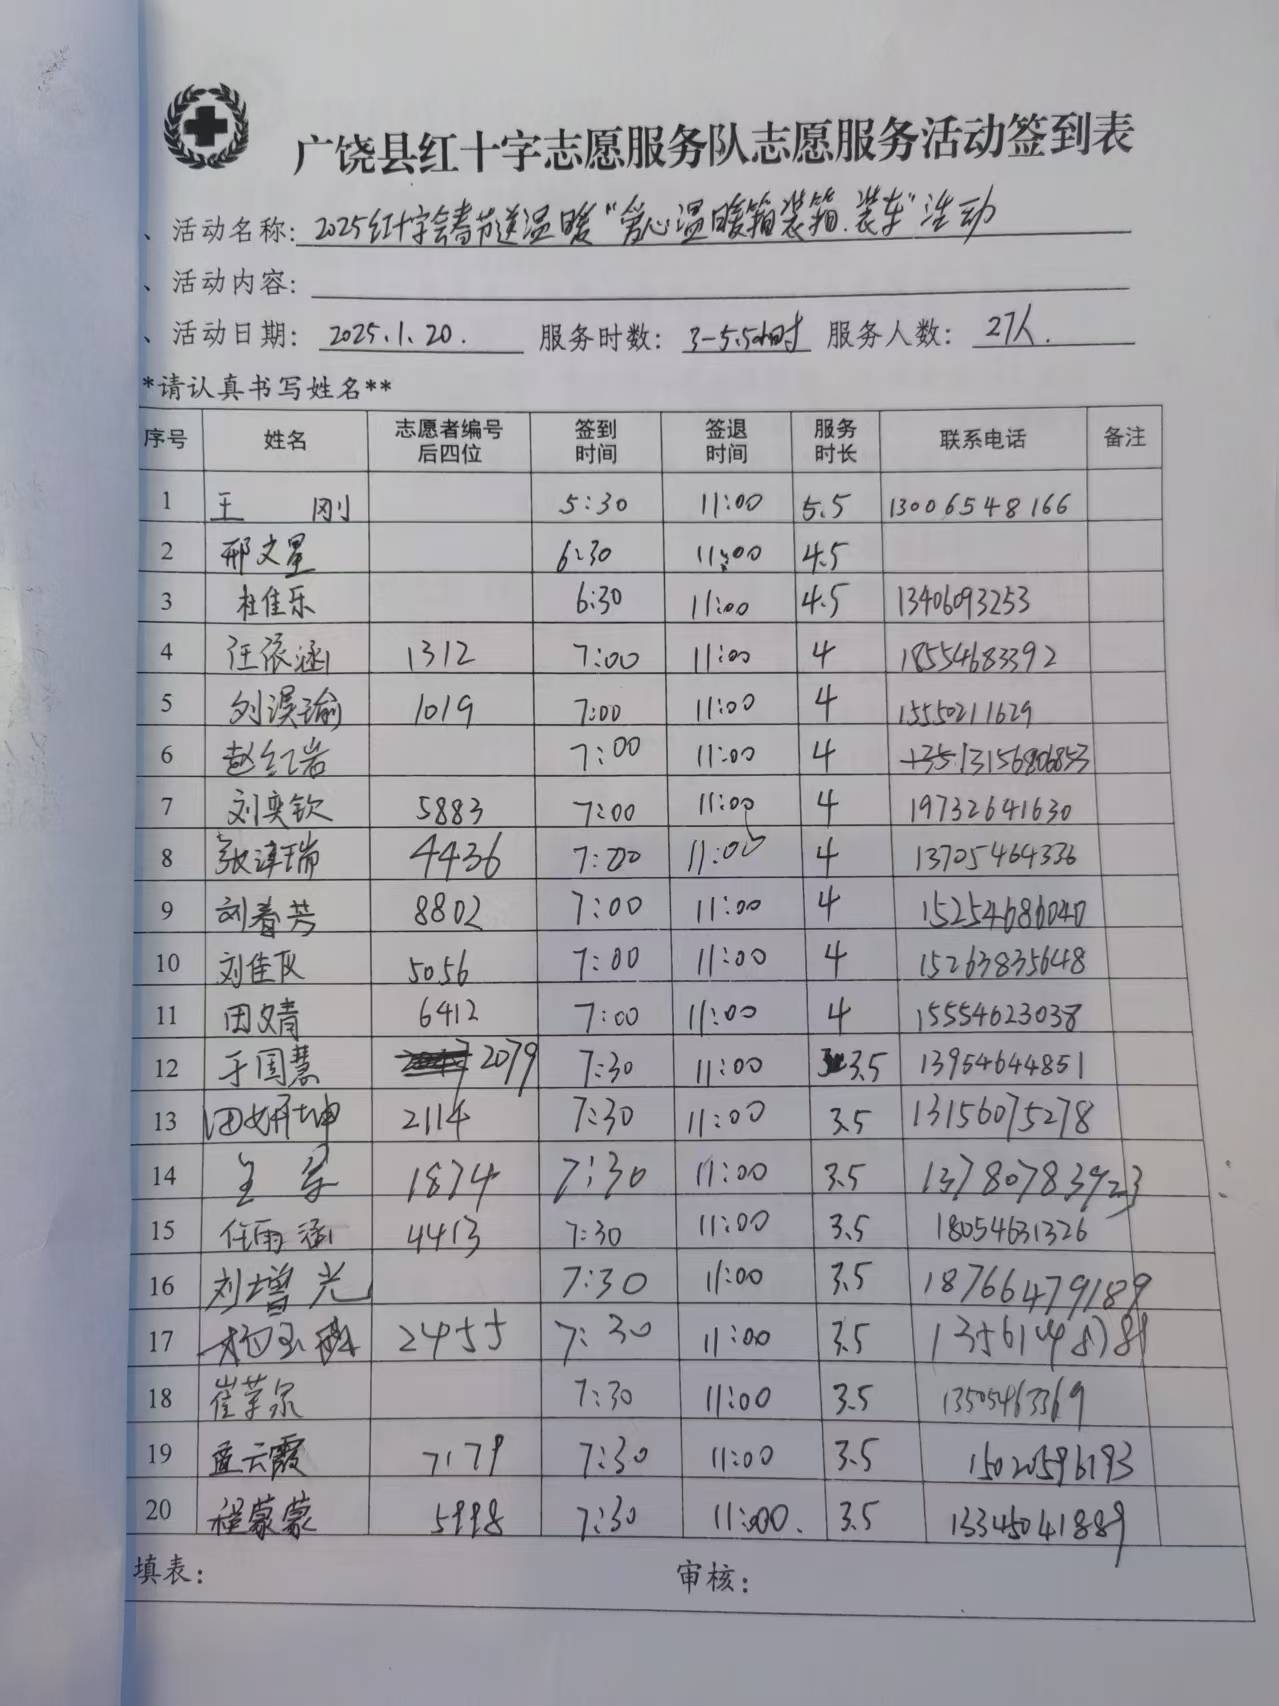 广饶县红十字志愿服务队志愿服务活动签到表
、活动名称: 2025红十字会春节送温暖“爱心温暖箱装箱.装车”活动
、活动内容:
、活动日期: 2025.1.20. 服务时数: 3-5.5小时 服务人数: 27人.
*请认真书写姓名**
序号 姓名 志愿者编号后四位 签到时间 签退时间 服务时长 联系电话 备注
1 王 刚 5:30 11:00 5.5 13006548166
2 邢文星 6:30 11:00 4.5
3 杜佳乐 6:30 11:00 4.5 13406093253
4 汪依涵 1312 7:00 11:00 4 18554683392
5 刘淏瑜 1019 7:00 11:00 4 15550211629
6 赵红岩 7:00 11:00 4 13156806853
7 刘奕钦 5883 7:00 11:00 4 19732641630
8 张津瑞 4436 7:00 11:00 4 13705464336
9 刘春芳 8802 7:00 11:00 4 15254686040
10 刘佳 5056 7:00 11:00 4 15263835648
11 田文青 6412 7:00 11:00 4 15554623038
12 于国慧 2079 7:30 11:00 3.5 13954644851
13 田妍坤 2114 7:30 11:00 3.5 13156075278
14 1874 7:30 11:00 3.5 13780783923
15 任雨涵 4413 7:30 11:00 3.5 18054631326
16 刘增光 7:30 11:00 3.5 18766479189
17 杨玉 2455 7:30 11:00 3.5
18 崔 7:30 11:00 3.5 13505463369
19 孟云霞 7179 7:30 11:00 3.5 15020596193
20 程蒙蒙 5998 7:30 11:00. 3.5 13345041889
填表: 审核: